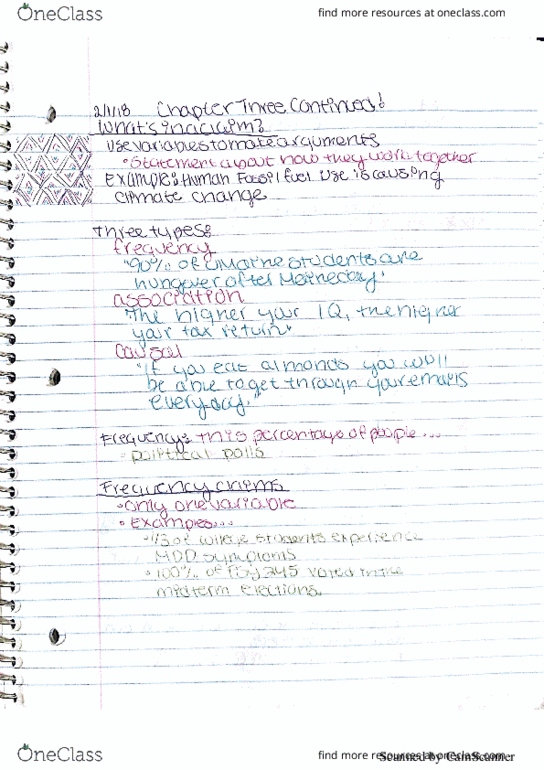 OneClass
find more resources at oneclass.com
2/1/18 Chapter Three Continued!
What's in a claim?
Use variables to make arguments
• Statement about how they work together
Example: Human Fossil fuel use is causing
climate change
Three types:
frequency
"90% of students are
hungover after Wednesday"
association
"The higher your IQ, the higher
your tax return"
Causal
"If you eat almonds you will
be able to get through your emails
everyday."
Frequency: This percentage of people...
• political polls
Frequency claims
• only one variable
• Examples...
• 1/3 of students experience
MDD symptoms
• 100% of Psy245 voted in the
midterm elections
OneClass
find more resources at oneclass.com
Scanned by CamScanner